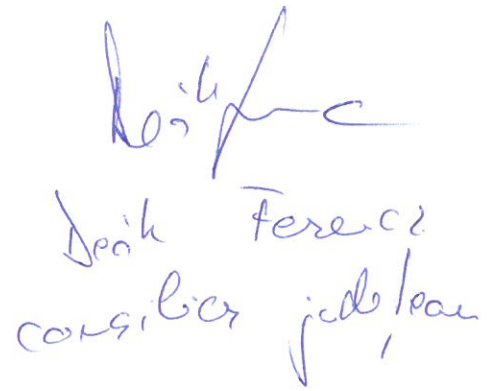 Deák Ferencz
consilier județean